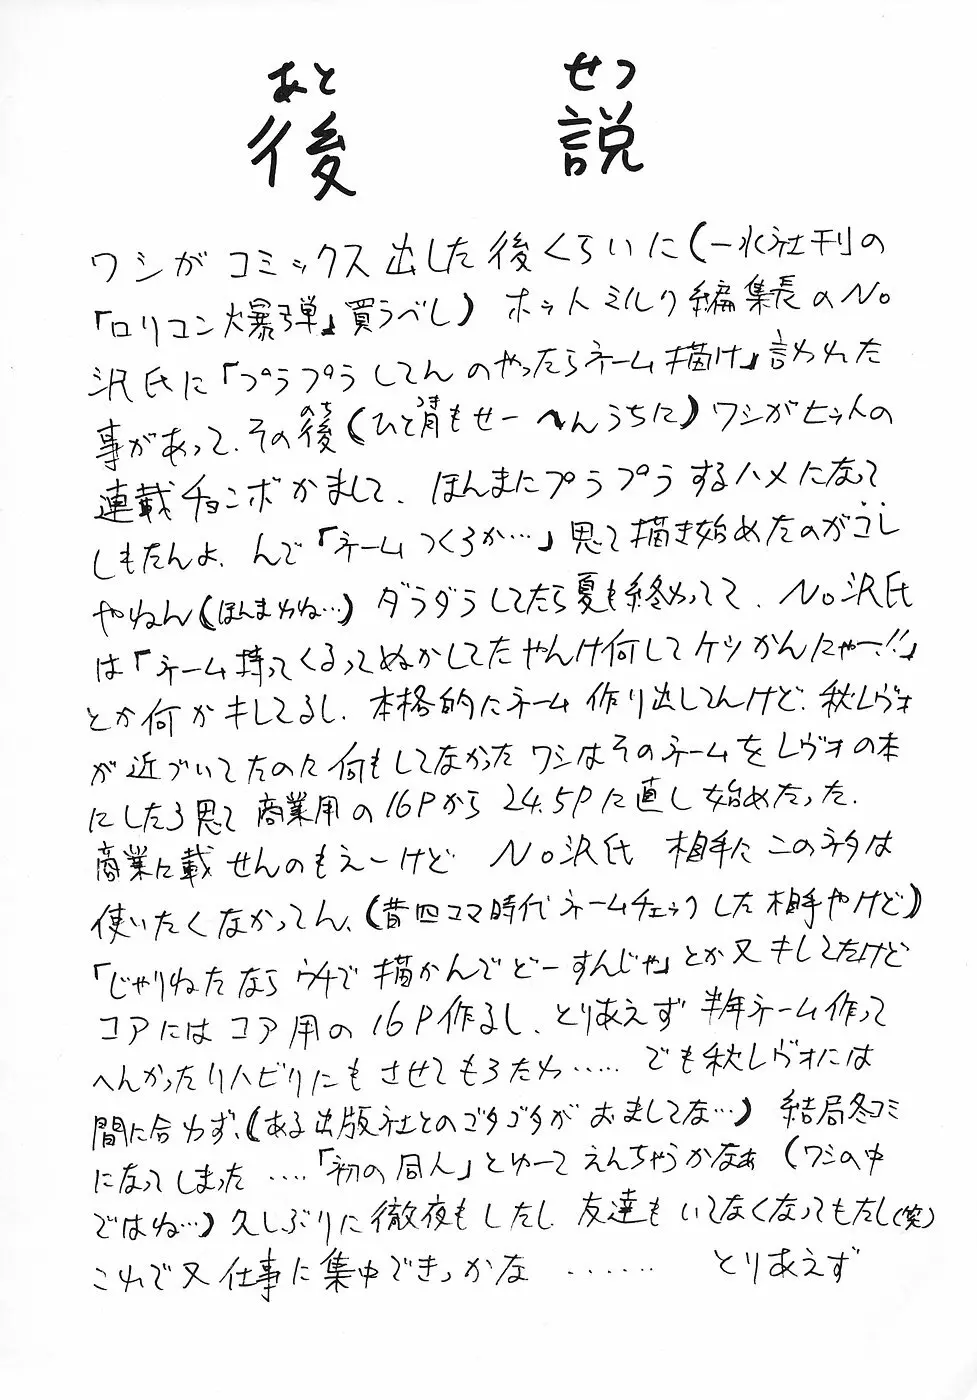 あと せつ
後 説
ワシがコミックス出した後くらいに(一水社刊の
「ロリコン爆弾」買うべし) ホットミルク編集長のNo
沢氏に「プラプラしてんのやったらネーム描け」言われた
事があって、その後(のち)(ひと月(つき)もせーへんうちに)ワシがヒットの
連載チョンボかまして、ほんまにプラプラするハメになって
しもたんよ、んで「ネームつくろか…」思て描き始めたのがコレ
やねん(ほんまかね…) ダラダラしてたら夏も終わってて、No沢氏
は「ネーム持ってくるってぬかしてたやんけ何してケツかんにゃー!!」
とか何かキしてるし、本格的にネーム作り出してんけど、秋レヴォ
が近づいてたのに何もしてなかったワシはそのネームをレヴォの本
にしたろ思て商業用の16Pから24.5Pに直し始めたった.
商業に載せんのもえーけど No沢氏 相手にこのネタは
使いたくなかってん、(昔四コマ時代ネームチェックした相手やけど)
「じゃりねたならウチで描かんでどーすんじゃ」とか又キしてたけど
コアにはコア用の16P作るし、とりあえず半年ネーム作って
へんかったリハビリにもさせてもろたわ…… でも秋レヴォには
間に合わず、(ある出版社とのゴタゴタがおましてな…) 結局冬コミ
になってしまった ….「初の同人」とゆーてえんちゃうかなぁ (ワシの中
ではね…) 久しぶりに徹夜もしたし 友達もいてなくなってもたし(笑)
これで又仕事に集中できっかな …… とりあえず